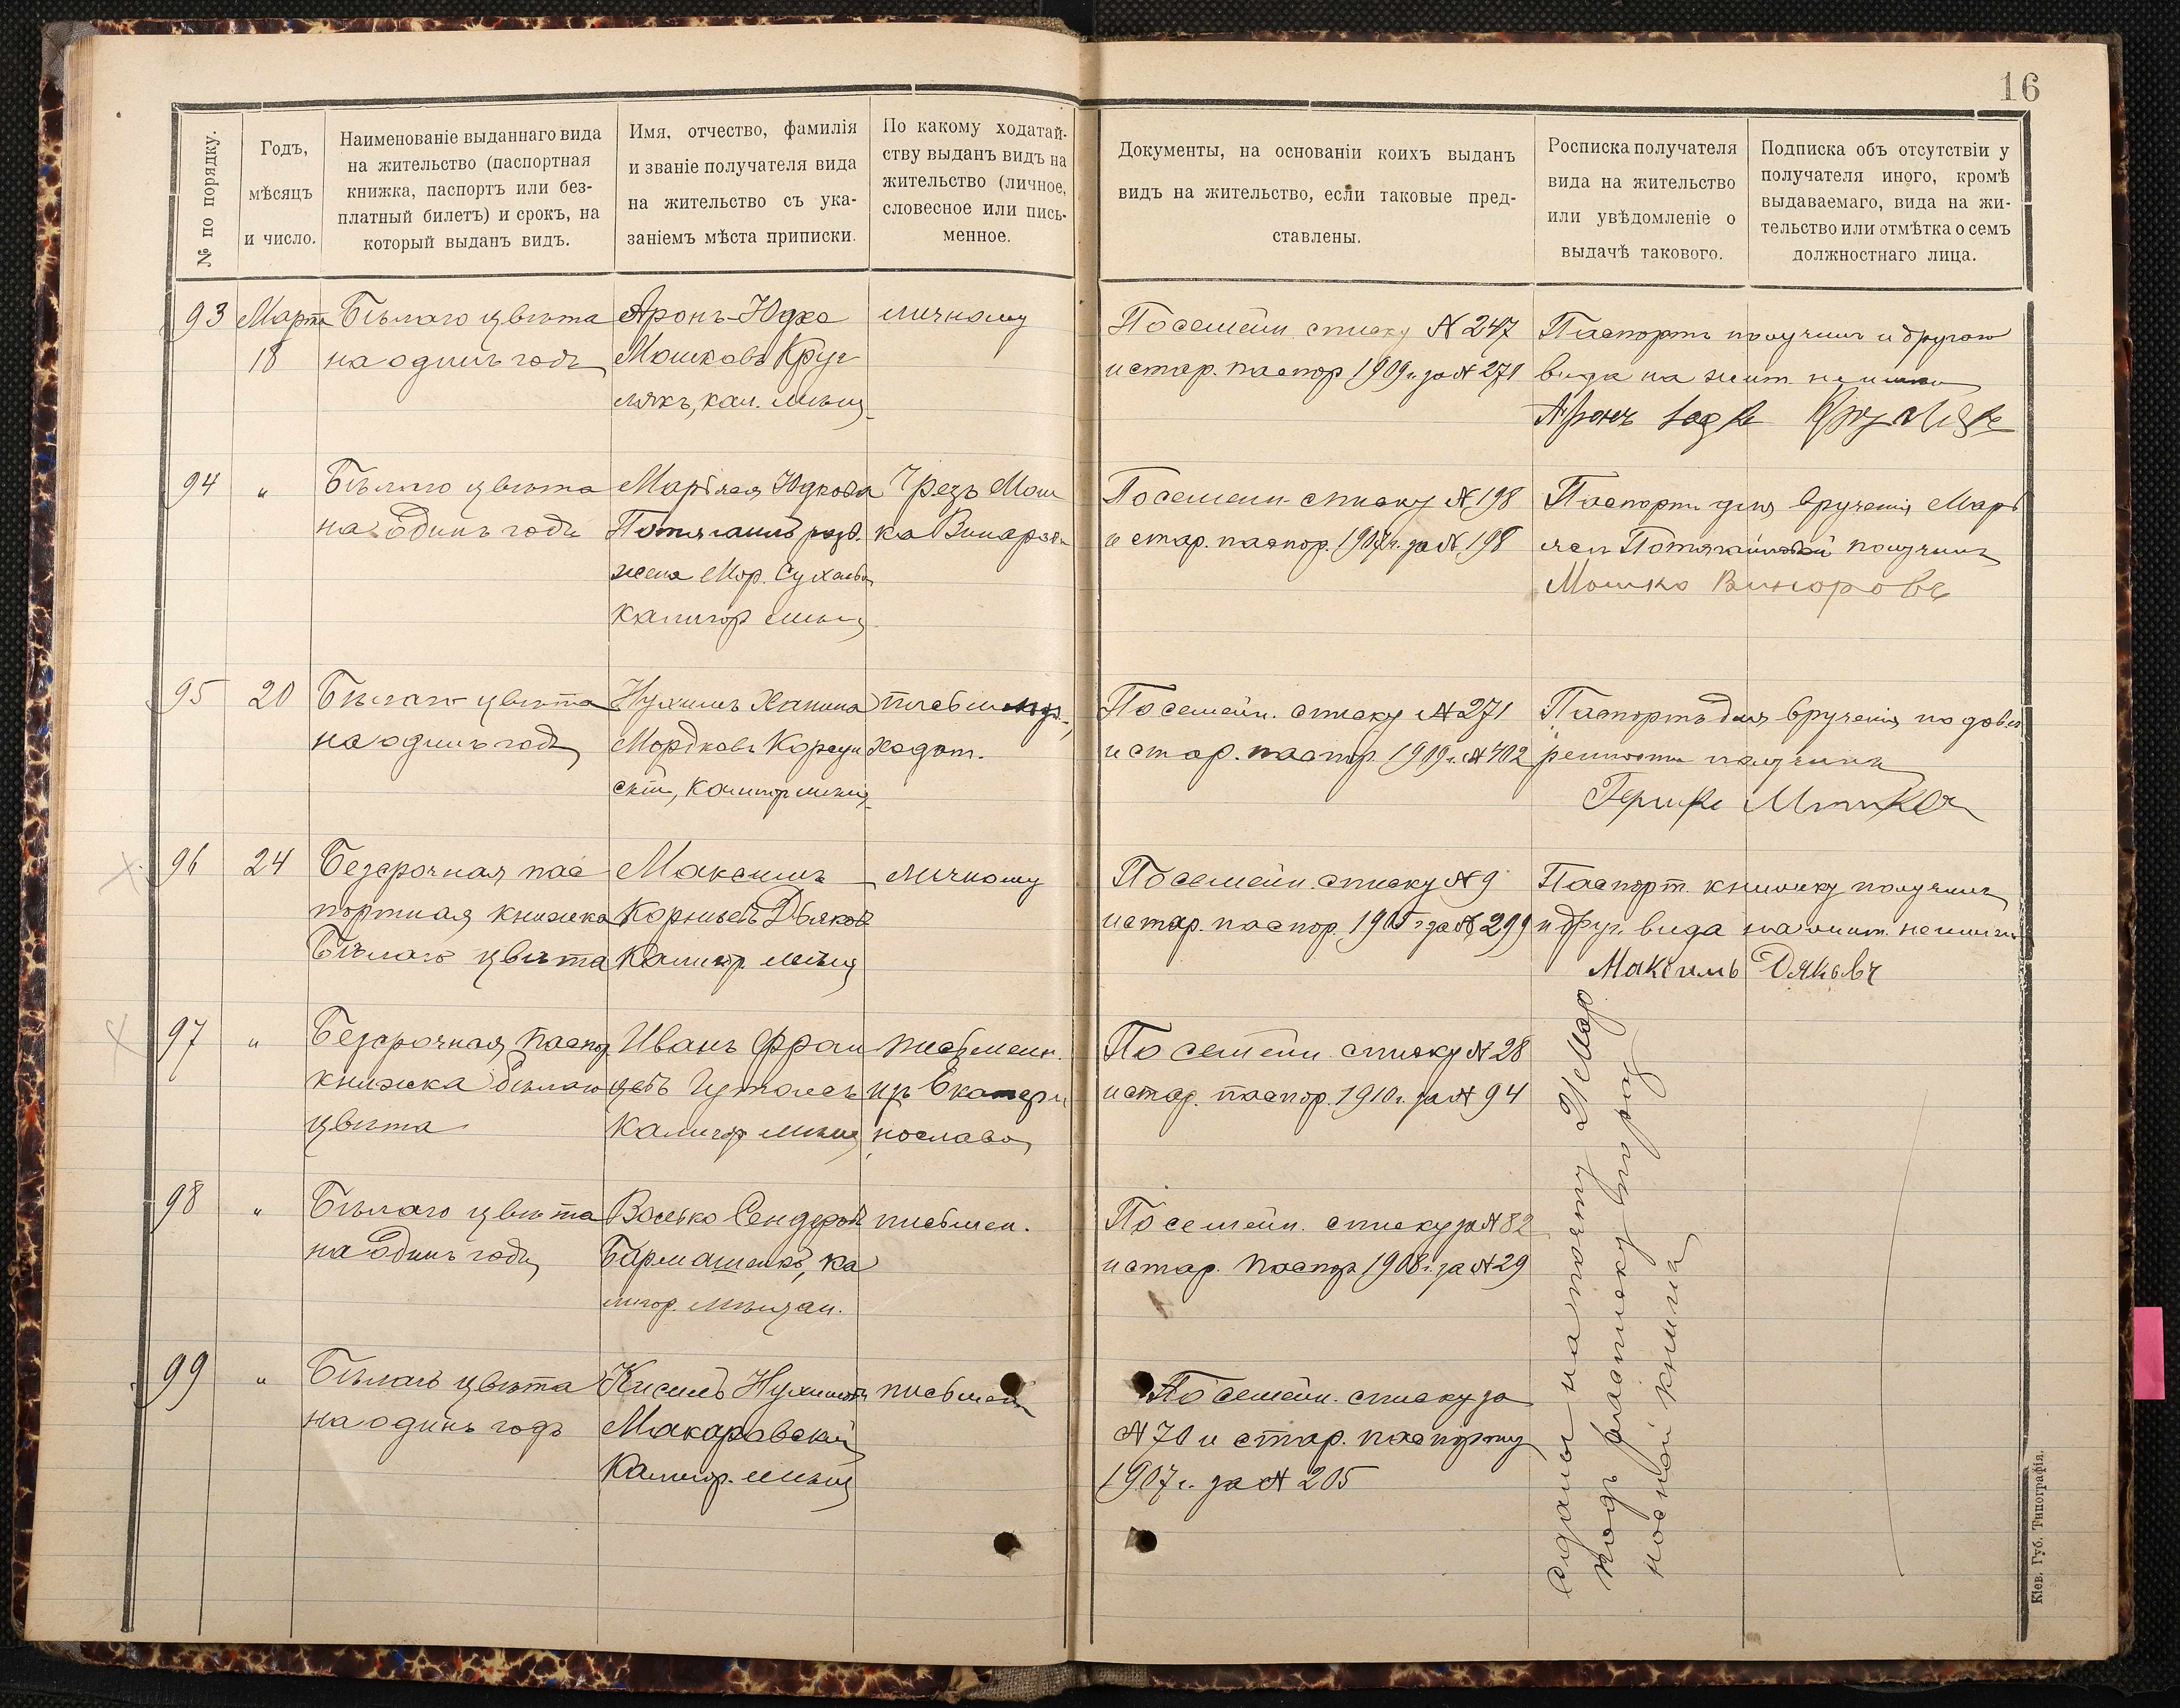 16
№ по порядку.
Годъ,
мѣсяцъ
и число.
Наименованіе выданнаго вида
на жительство (паспортная
книжка, паспортъ или без-
платный билетъ) и срокъ, на
который выданъ видъ.
Имя, отчество, фамилія
и званіе получателя вида
на жительство съ ука-
заніемъ мѣста приписки.
По какому ходатай-
ству выданъ видъ на
жительство (личное,
словесное или пись-
менное.
Документы, на основаніи коихъ выданъ
видъ на жительство, если таковые пред-
ставлены.
Росписка получателя
вида на жительство
или увѣдомленіе о
выдачѣ такового.
Подписка объ отсутствіи у
получателя иного, кромѣ
выдаваемаго, вида на жи-
тельство или отмѣтка о семъ
должностнаго лица.
93
Марта
18
Бѣлаго цвѣта
на одинъ годъ
Аронъ-Юдко
Мошковъ Круг
лякъ, кал. мѣщ
личному
По семейн. списку № 247
и стар. паспор 1909 г. за № 271
Паспортъ получилъ и другого
вида на жит. не имѣю
94
"
Бѣлаго цвѣта
на одинъ годъ
Юдкова
жена Мор.
калигор мѣщ
Чрезъ Мош
ка Винаров
По семейн списку № 198
и стар. паспор. г. за № 198
Паспортъ для врученія Марі
получилъ
Мошко Винаровъ
95
20
Бѣлаго цвѣта
на одинъ годъ
Нухимъ Ханина
Мордковъ Корсун
скій, Калигор мѣщ
письменн.
ходат.
По семейн. списку № 271
и стар. паспор. 1909 г. № 402
Паспортъ для врученія по довѣ
ренности получилъ
96
24
Безсрочная пас
портная книжка
Бѣлаго цвѣта
Максимъ
Корніевъ Дьяковъ
Калигор. мѣщ
личному
По семейн. списку № 9
и стар. паспор. 1905 г. за № 299
Паспорт. книжку получилъ
и друг. вида на жит. не имѣю
Максимъ Дяковъ
97
"
Безсрочная паспор
книжка бѣлаго
цвѣта
Иванъ Фран
Калигор мѣщ
письменн.
изъ Екатери
нослава
По семейн. списку № 28
и стар. паспор. 1910 г. за № 94
98
"
Бѣлаго цвѣта
на одинъ годъ
Волько Сендеровъ
Бармашенко, ка
лигор. мѣщан.
письмен.
По семейн. списку за № 82
и стар. паспор 1908 г. за № 29
99
"
Бѣлаго цвѣта
на одинъ годъ
Кисиль Нухимовъ
Макаровскій
Калигор. мѣщ
письмен
По семейн. списку за
№ 70 и стар. паспорту
1907 г. за № 205
Сданы на почту 24 Мар
подъ росписку по раз
носной книгѣ
Кіев. Губ. Типографія.